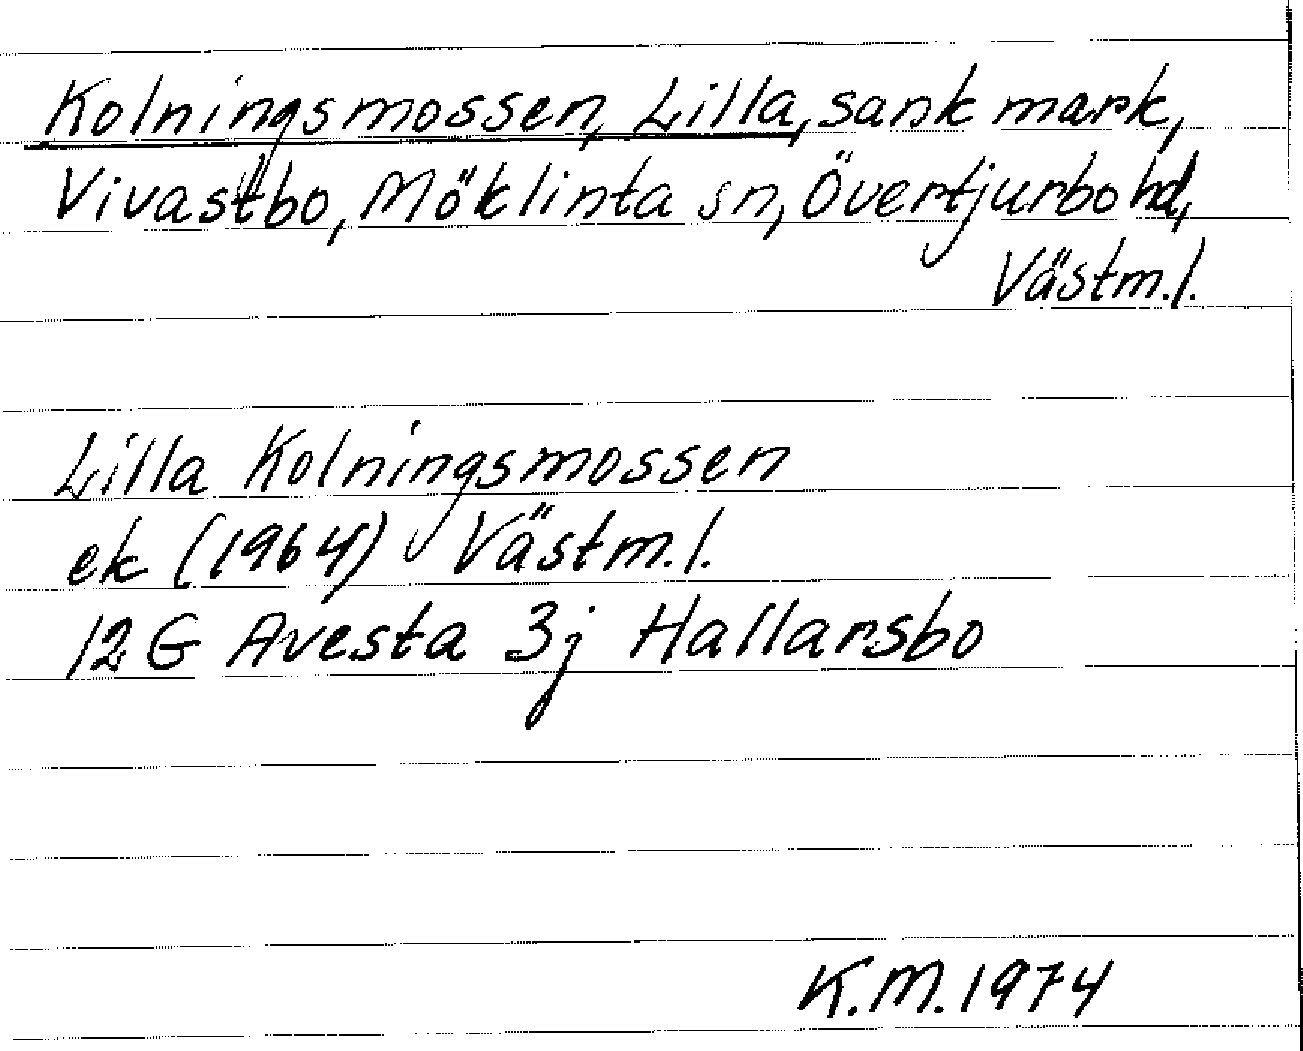 Kolningsmossen, Lilla, sank mark,
Vivastbo, Möklinta sn, Övertjurbo hd,
Västm.l.
Lilla Kolningsmossen
ek (1964) Västm.l.
12 G Avesta 3j Hallarsbo
K.M. 1974